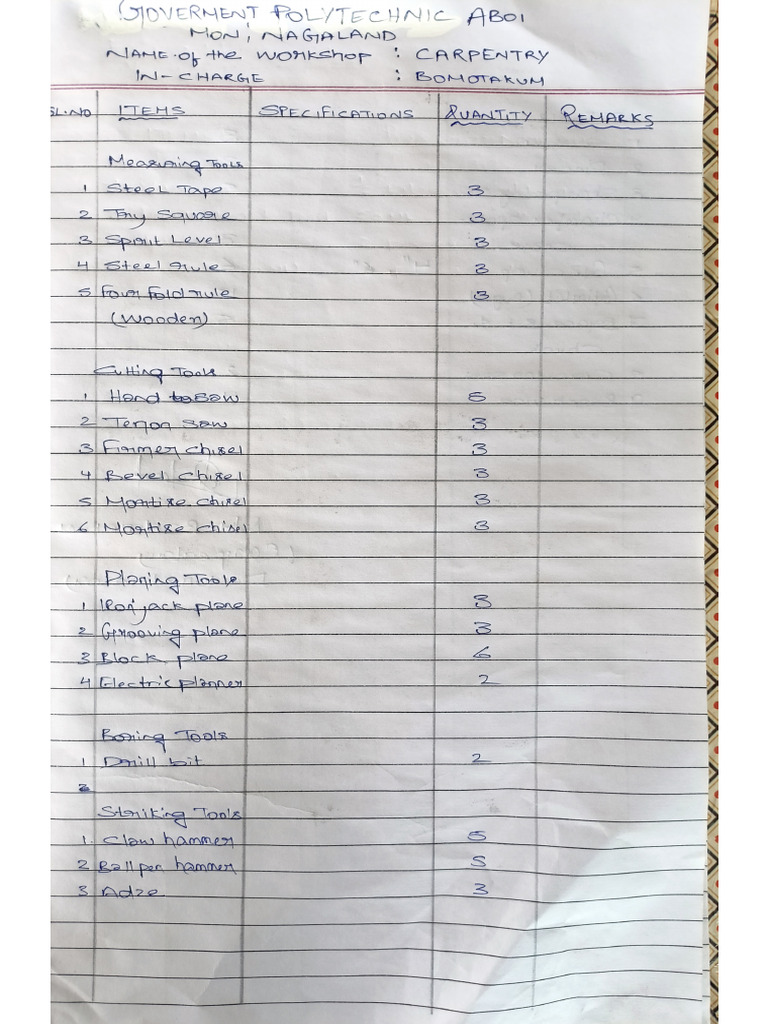 GOVERMENT POLYTECHNIC ABOI
MON, NAGALAND
NAME of the WORKSHOP : CARPENTRY
IN-CHARGE : BOMOTAKUM
SL.NO ITEMS SPECIFICATIONS QUANTITY REMARKS
Measuring Tools
1 Steel Tape 3
2 Try Square 3
3 Sprit Level 3
4 Steel rule 3
5 Four fold rule 3
(Wooden)
Cutting Tools
1 Hand Saw 5
2 Tenon Saw 3
3 Firmer chisel 3
4 Bevel chisel 3
5 Mortise chisel 3
6 Mortise chisel 3
Planing Tools
1 Iron jack plane 3
2 Grooving plane 3
3 Block plane 6
4 Electric planner 2
Boring Tools
1 Drill bit 2
2
Striking Tools
1. Claw hammer 5
2 Ball pen hammer 5
3 Adze 3